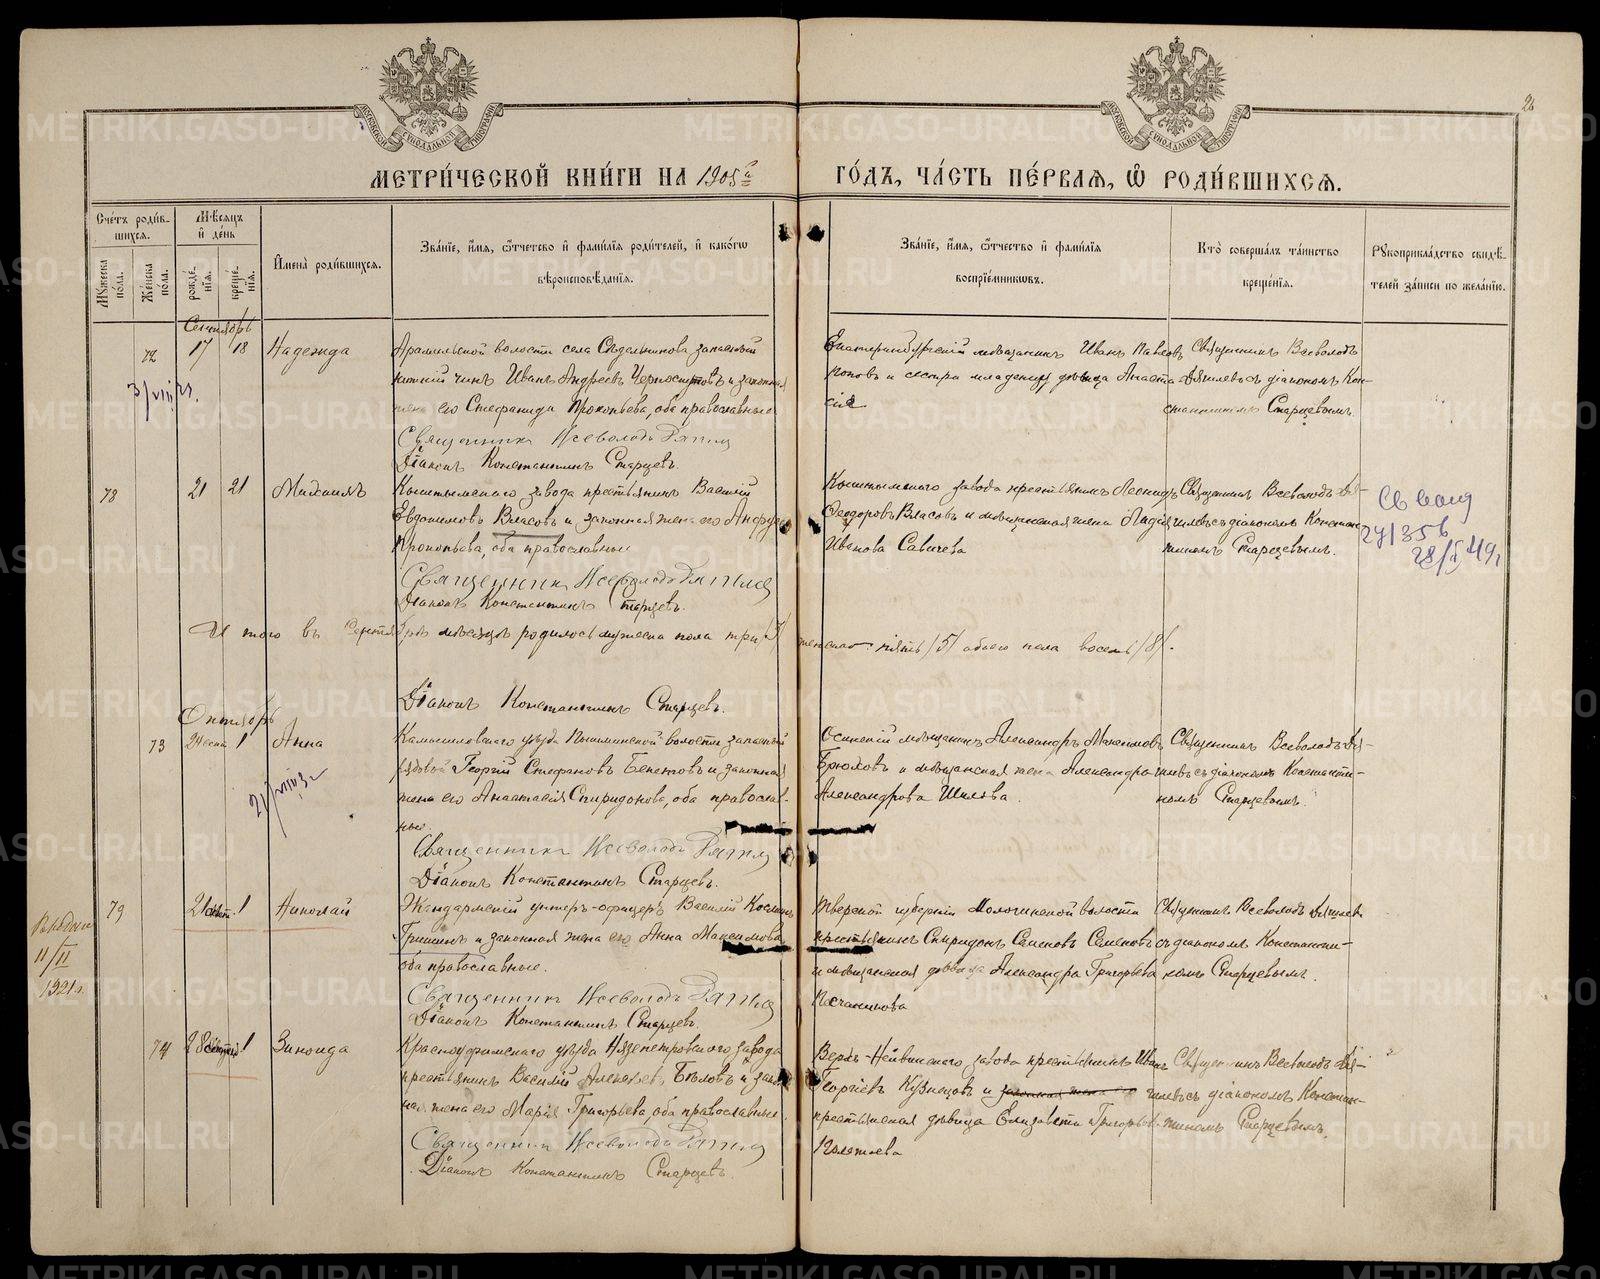 МЕТРИ́ЧЕСКОЙ КНИ́ГИ НА 1905й
ГО́ДЪ, ЧА́СТЬ ПЕ́РВАѦ, Ѡ҆ РОДИ́ВШИХСѦ.
26
Сче́тъ роди́вшихсѧ.
Мѣ́сяцъ и҆ де́нь
Мꙋ́жеска по́ла.
Же́нска по́ла.
рожде́нїѧ.
креще́нїѧ.
И҆мена̀ роди́вшихсѧ.
Зва́нїе, и҆́мѧ, ѻ҆́тчество и҆ фами́лїѧ роди́телей, и҆ како́гѡ
вѣроисповѣ́данїѧ.
Зва́нїе, и҆́мѧ, ѻ҆́тчество и҆ фами́лїѧ
воспрїе́мникѡвъ.
Кто̀ соверша́лъ та́инство
креще́нїѧ.
Рꙋкоприкла́дство свидѣ́-
телей за́писи по жела́нїю.
Сентябрь
72 17 18 Надежда
Арамильской волости села Сѣдельникова запасный
нижній чинъ Иванъ Андреевъ Черноскутовъ и законная
жена его Стефанида Прокопьева, оба православные
Священникъ Всеволодъ
Діаконъ Константинъ Старцевъ.
Екатеринбургскій мѣщанинъ Иванъ Павловъ
Поповъ и сестра младенца дѣвица Анаста-
сія
Священникъ Всеволодъ
съ діакономъ Кон-
стантиномъ Старцевымъ.
78 21 21 Михаилъ
Кыштымскаго завода крестьянинъ Василій
Евдокимовъ Власовъ и законная жена его
Прокопьева, оба православные
Священникъ Всеволодъ
Діаконъ Константинъ Старцевъ.
Кыштымскаго завода крестьянинъ Леонидъ
Ѳеодоровъ Власовъ и мѣщанская жена Лидія
Иванова Савичева
Священникъ Всеволодъ
съ діакономъ Констан-
тиномъ Старцевымъ.
Итого въ Сентябрѣ мѣсяцѣ родилось мужеска пола три /3/
женска пять /5/ обоего пола восемь /8/.
Діаконъ Константинъ Старцевъ.
Октябрь
73 1 Анна
Камышловскаго уѣзда Пышминской волости запасный
рядовой Георгій Стефановъ и законная
жена его Анастасія Спиридонова, оба православ-
ные.
Священникъ Всеволодъ
Діаконъ Константинъ Старцевъ.
Осинскій мѣщанинъ Александръ Максимовъ
Брюховъ и мѣщанская жена Александра
Александрова Шилова.
Священникъ Всеволодъ
съ діакономъ Константи-
номъ Старцевымъ.
79 1 Николай
Жандармскій унтеръ-офицеръ Василій Козминъ
Гришинъ и законная жена его Анна Максимова
оба православные.
Священникъ Всеволодъ
Діаконъ Константинъ Старцевъ.
Тверской губерніи волости
крестьянинъ Спиридонъ Семеновъ Семеновъ
и мѣщанская дѣвица Александра Григорьева
Священникъ Всеволодъ
съ діакономъ Константи-
номъ Старцевымъ.
11/II
1921 г.
74 28 1 Зинаида
Красноуфимскаго уѣзда Нязепетровскаго завода
крестьянинъ Василій Алексѣевъ Бѣловъ и закон-
ная жена его Марія Григорьева, оба православные.
Священникъ Всеволодъ
Діаконъ Константинъ Старцевъ.
Верхъ-Нейвинскаго завода крестьянинъ Иванъ
Георгіевъ Кузнецовъ и законная жена его
крестьянская дѣвица Елизавета Григорьева
Священникъ Всеволодъ
съ діакономъ Констан-
тиномъ Старцевымъ.
METRIKI.GASO-URAL.RU